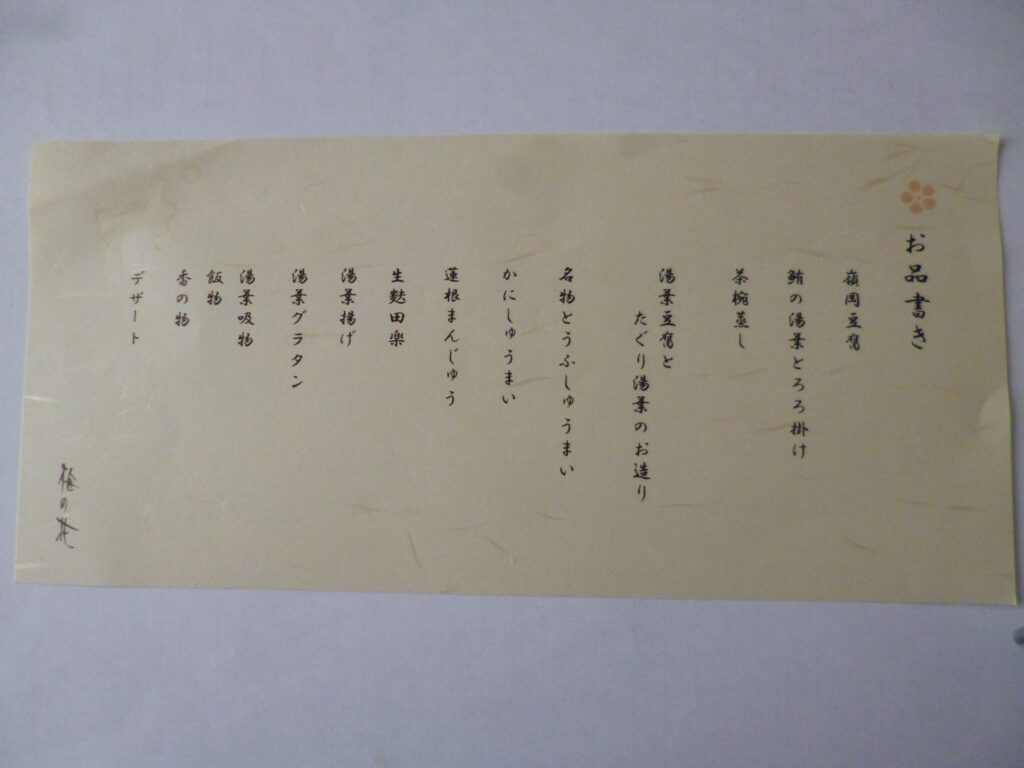 お品書き
嶺岡豆腐
鮪の湯葉とろろ掛け
茶椀蒸し
湯葉豆腐と
たぐり湯葉のお造り
名物とうふしゅうまい
かにしゅうまい
蓮根まんじゅう
生麩田楽
湯葉揚げ
湯葉グラタン
湯葉吸物
飯物
香の物
デザート
梅の花